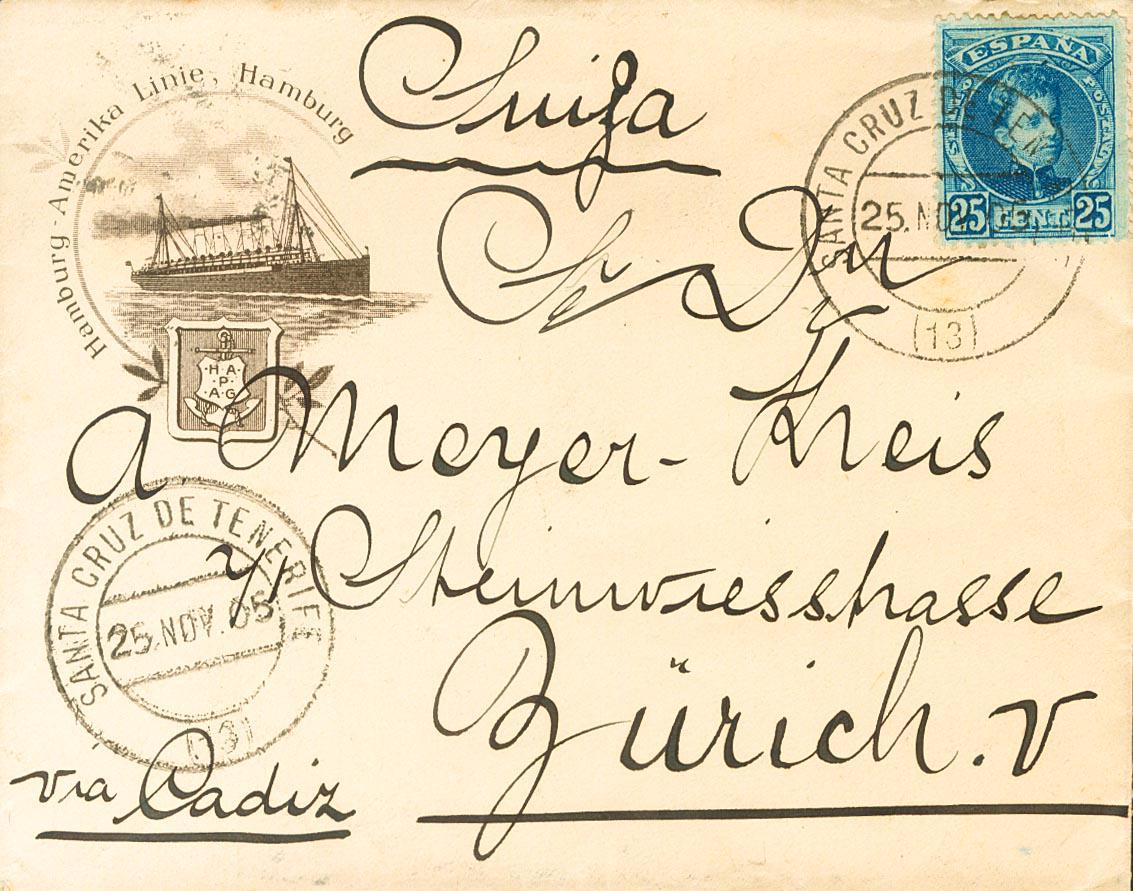 Hamburg-Amerika Linie, Hamburg
H A
P
A G
Suiza
ESPAÑA
25 CENT. 25
SANTA CRUZ DE TEN
25. NOV
(13)
Sr Dn
A Meyer-Kreis
Steinwiesstrasse
Zürich. V
SANTA CRUZ DE TENERIFE
25. NOV. 05
(13)
via Cadiz